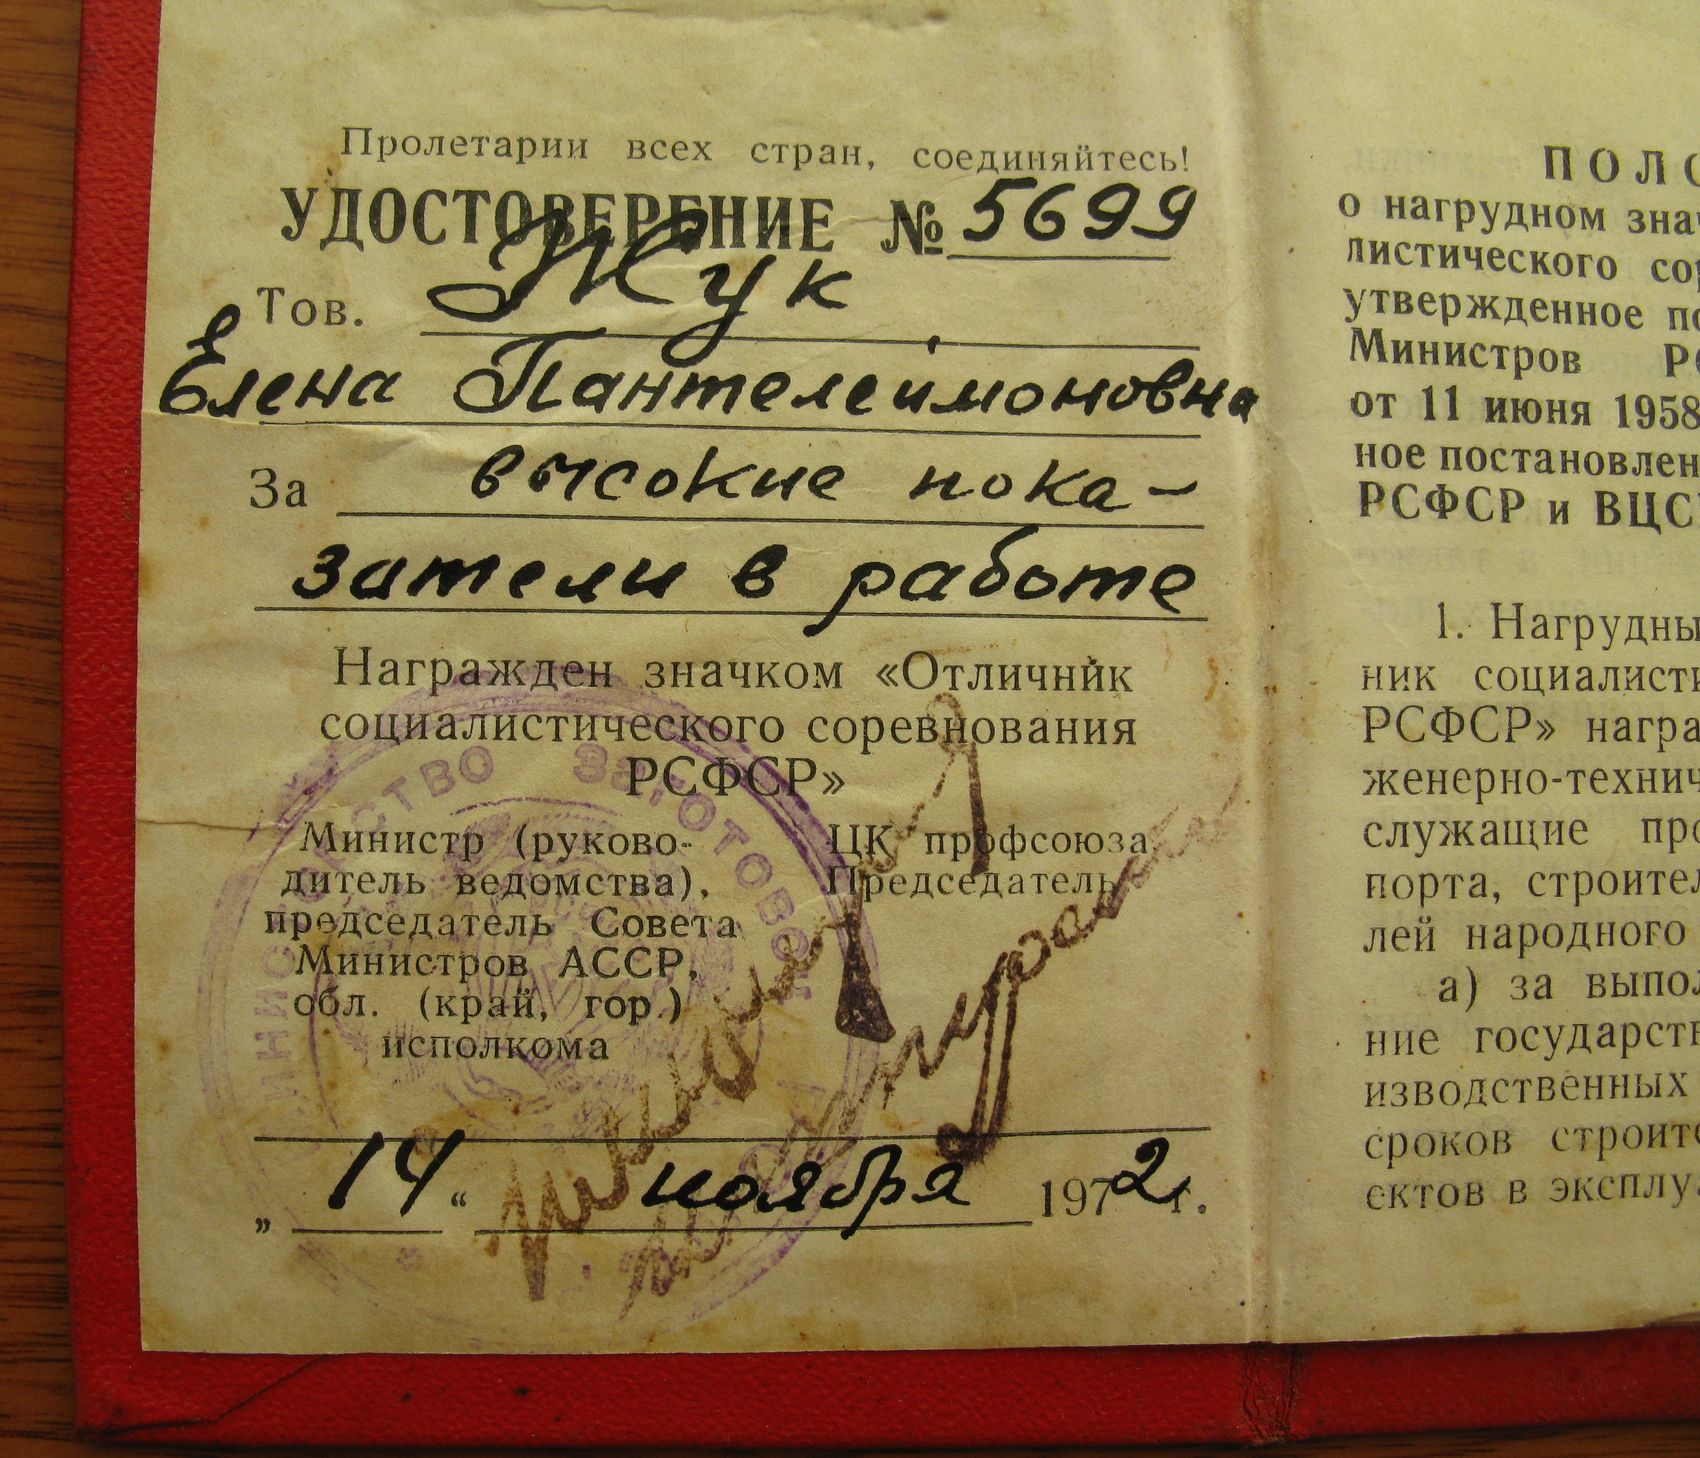 Пролетарии всех стран, соединяйтесь!
УДОСТОВЕРЕНИЕ № 5699
Тов. Жук
Елена Пантелеймоновна
За высокие пока-
затели в работе
Награжден значком «Отличник
социалистического соревнования
РСФСР»
Министр (руково-
дитель ведомства),
председатель Совета
Министров АССР,
обл. (край, гор.)
исполкома
ЦК профсоюза
Председатель
„14“ ноября 1972 г.
ПОЛО
о нагрудном знач
листического сор
утвержденное по
Министров РС
от 11 июня 1958
ное постановлен
РСФСР и ВЦС
1. Нагрудны
ник социалисти
РСФСР» награ
женерно-технич
служащие про
порта, строител
лей народного
а) за выпол
ние государств
изводственных
сроков строите
ектов в эксплуа